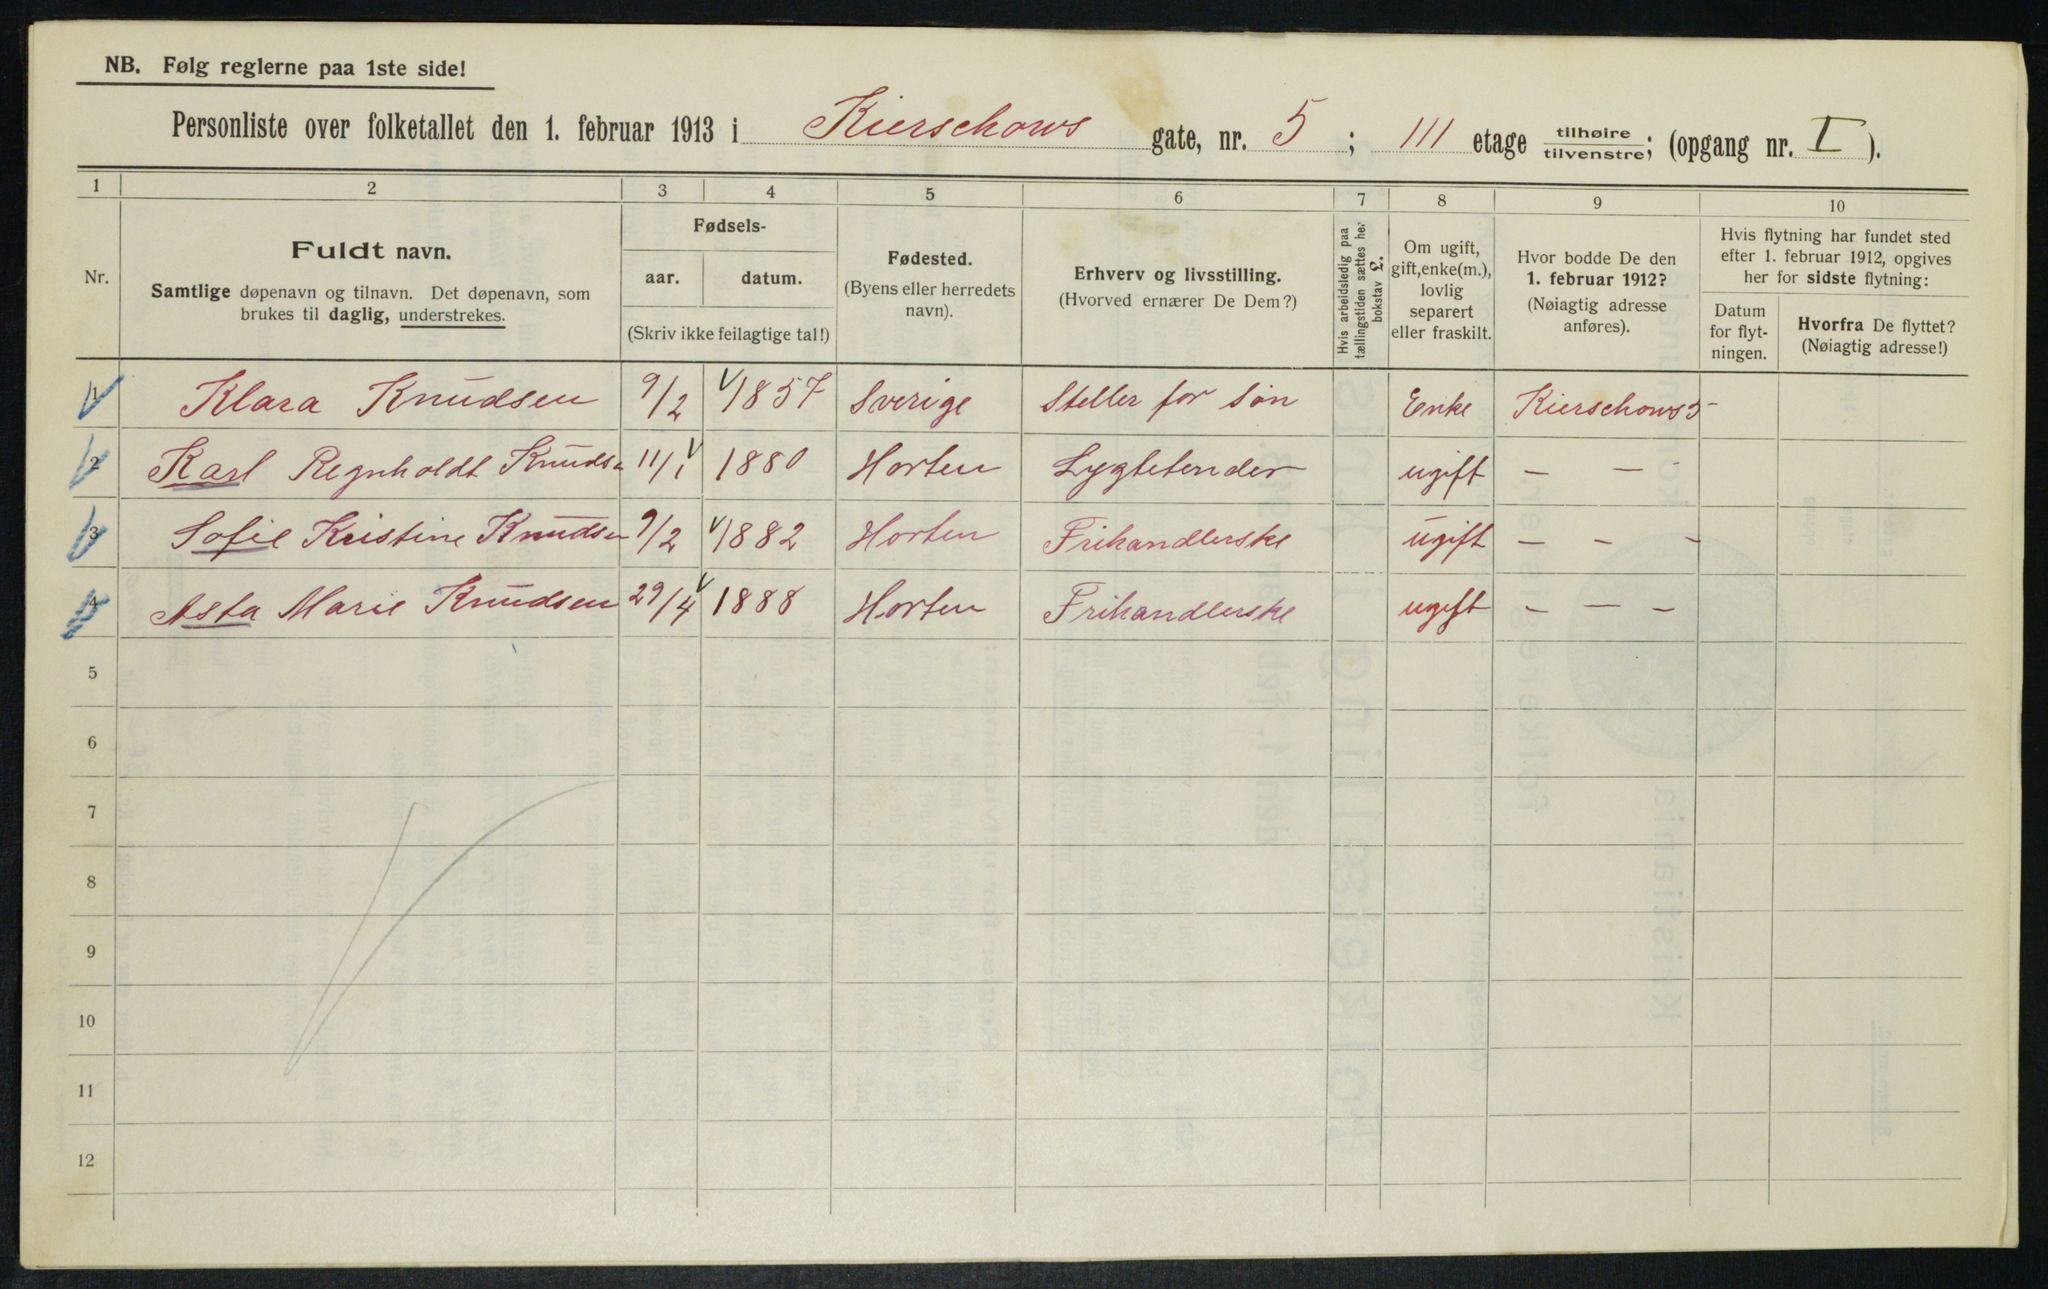 NB. Følg reglerne paa 1ste side!
Personliste over folketallet den 1. februar 1913 i Kierschows gate, nr. 5 ; III etage tilhøire tilvenstre; (opgang nr. I ).
1 2 3 4 5 6 7 8 9 10
Nr.
Fuldt navn.
Samtlige døpenavn og tilnavn. Det døpenavn, som
brukes til daglig, understrekes.
Fødsels-
aar. datum.
(Skriv ikke feilagtige tal!)
Fødested.
(Byens eller herredets
navn).
Erhverv og livsstilling.
(Hvorved ernærer De Dem?)
Hvis arbeidsledig paa
tællingstiden sættes her
bokstav L.
Om ugift,
gift, enke(m.),
lovlig
separert
eller fraskilt.
Hvor bodde De den
1. februar 1912?
(Nøiagtig adresse
anføres).
Hvis flytning har fundet sted
efter 1. februar 1912, opgives
her for sidste flytning:
Datum
for flyt-
ningen.
Hvorfra De flyttet?
(Nøiagtig adresse!)
1 Klara Knudsen 9/2 1857 Sverige Steller for Søn Enke Kierschows 5
2 Karl Regnholdt Knudsen 11/1 1880 Horten Lygtetender ugift — —
3 Sofie Kristine Knudsen 9/2 1882 Horten Frihandlerske ugift — — —
4 Asta Marie Knudsen 29/4 1888 Horten Frihandlerske ugift — — —
5
6
7
8
9
10
11
12